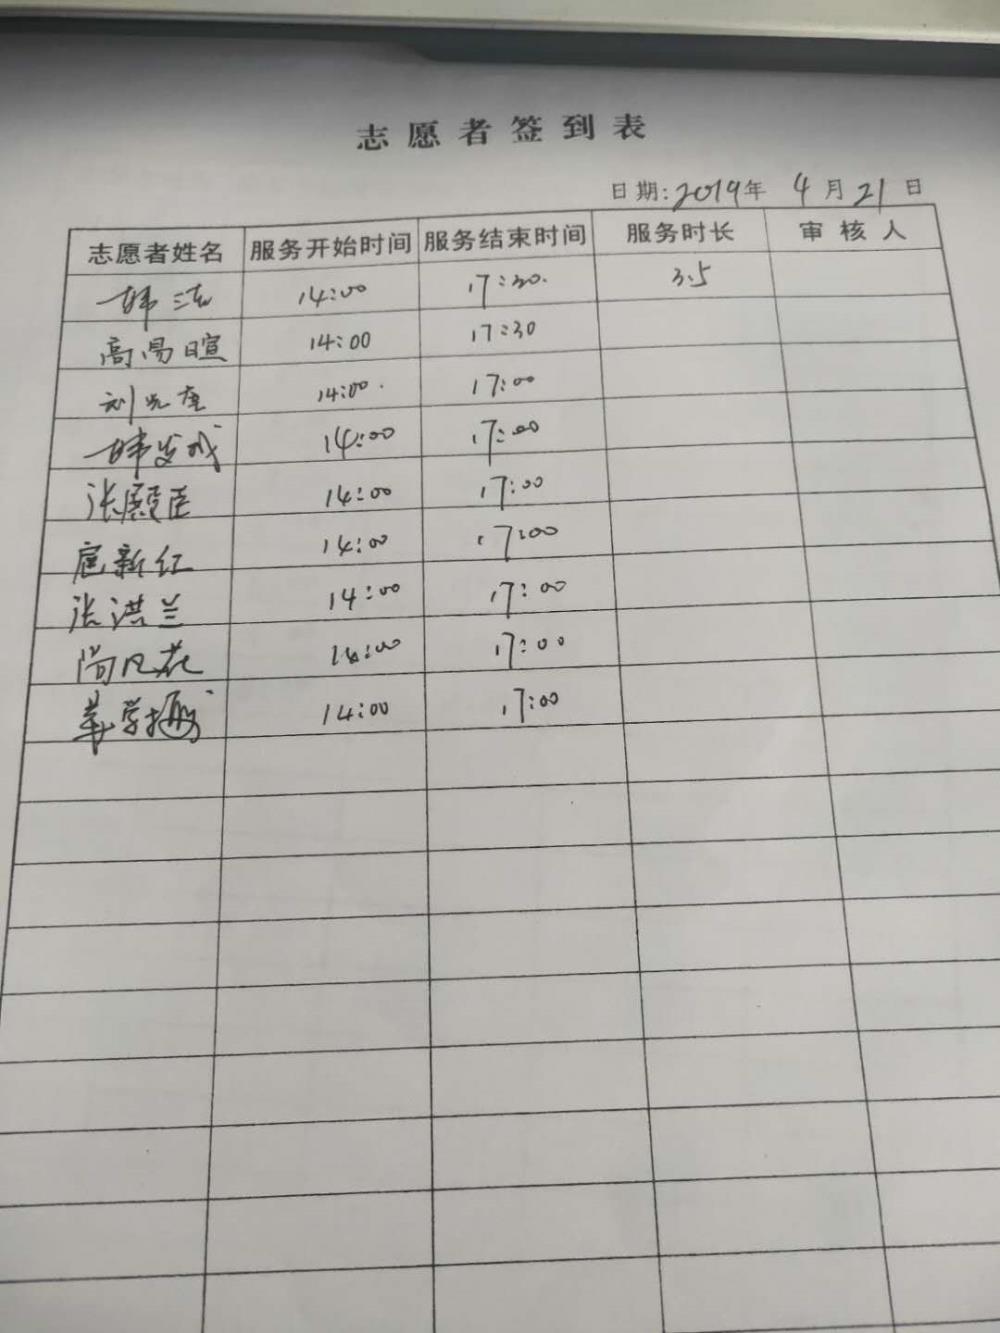 志愿者签到表
日期:2019年 4月21日
志愿者姓名 服务开始时间 服务结束时间 服务时长 审核人
韩 14:00 17:30. 3.5
高易暄 14:00 17:30
刘 14:00. 17:00
韩发成 14:00 17:00
张殿臣 14:00 17:00
扈新红 14:00 17:00
张洪兰 14:00 17:00
尚凡花 14:00 17:00
学 14:00 17:00